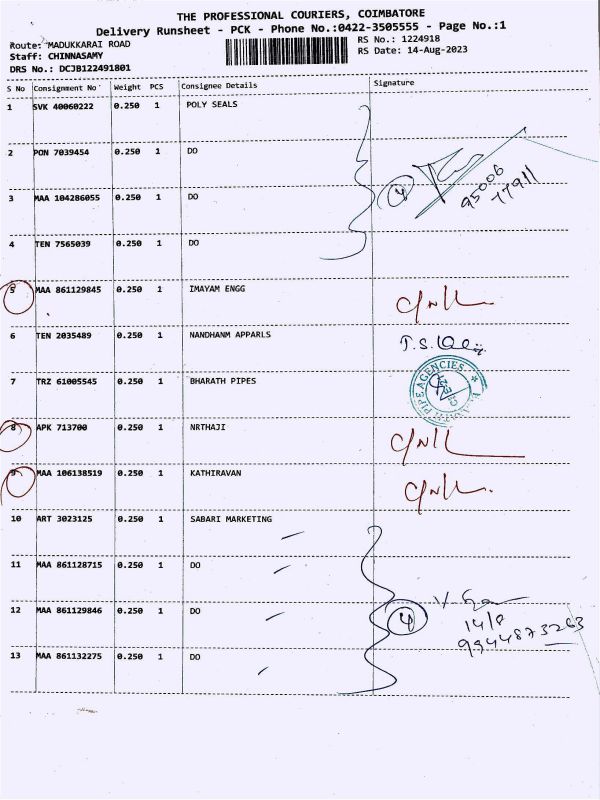 THE PROFESSIONAL COURIERS, COIMBATORE
Delivery Runsheet - PCK - Phone No.:0422-3505555 - Page No.:1
Route: MADUKKARAI ROAD
RS No.: 1224918
Staff: CHINNASAMY
RS Date: 14-Aug-2023
DRS No.: DCJB122491801
S No Consignment No Weight PCS Consignee Details Signature
1 SVK 40060222 0.250 1 POLY SEALS
2 PON 7039454 0.250 1 DO
4
95006
77911
3 MAA 104286055 0.250 1 DO
4 TEN 7565039 0.250 1 DO
5 MAA 861129845 0.250 1 IMAYAM ENGG
6 TEN 2035489 0.250 1 NANDHANM APPARLS
7 TRZ 61005545 0.250 1 BHARATH PIPES
PIPE AGENCIES
8 APK 713700 0.250 1 NRTHAJI
9 MAA 106138519 0.250 1 KATHIRAVAN
10 ART 3023125 0.250 1 SABARI MARKETING
11 MAA 861128715 0.250 1 DO
12 MAA 861129846 0.250 1 DO
4
14/8
9944873263
13 MAA 861132275 0.250 1 DO